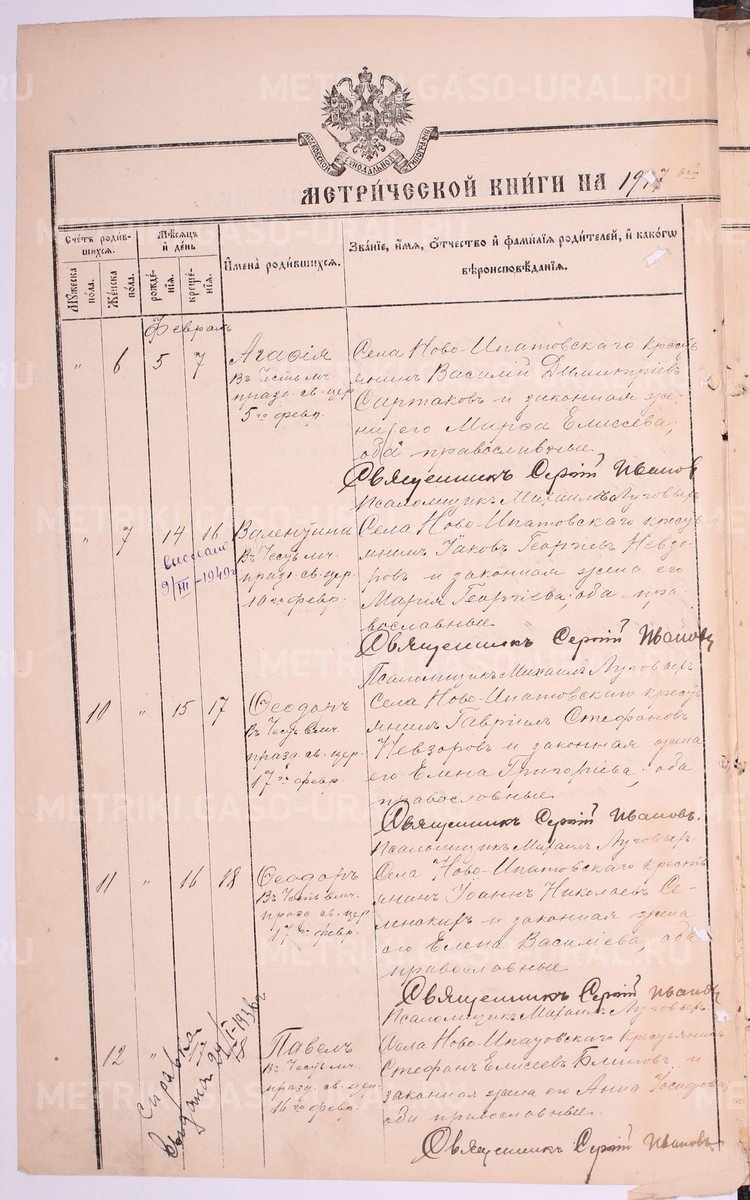 METRIKI.GASO-URAL.RU
МОСКОВСКОЙ СѴНОДАЛЬНОЙ ТИПОГРАФІИ
МЕТРИ́ЧЕСКОЙ КНИ́ГИ НА 1917 ый
Сче́тъ роди́в-
шихся.
Мѣ́сяцъ
и҆ де́нь
И҆мена̀ роди́вшихся.
Зва́нїе, и҆́мя, ѻ҆́тчество и҆ фами́лїя роди́телей, и҆ како́гѡ
вѣроисповѣ́данїя.
Мꙋ́жеска
по́ла.
Же́нска
по́ла.
рожде́-
нїя.
креще́-
нїя.
Февраль
" 6 5 7 Агафія
Въ Честь мч.
празд. св. цер.
5го февр.
Села Ново-Ипатовскаго кресть
янинъ Василій Димитріевъ
Сартаковъ и законная же-
на его Марфа Елисеева,
оба православные
Священникъ Сергій Ивановъ
Псаломщикъ Михаилъ Луговыхъ
" 7 14 16 Валентина
Въ Честь мч.
празд. св. цер.
10го февр.
Села Ново-Ипатовскаго кресть
янинъ Іаковъ Георгіевъ Невзо-
ровъ и законная жена его
Марія Георгіева, оба пра-
вославные
Священникъ Сергій Ивановъ
Псаломщикъ Михаилъ Луговыхъ
9/III-1949г
10 " 15 17 Ѳеодоръ
Въ Честь вмч.
празд. св. цер.
17го февр.
Села Ново-Ипатовскаго кресть
янинъ Гавріилъ Стефановъ
Невзоровъ и законная жена
его Елена Григоріева, оба
православные
Священникъ Сергій Ивановъ.
Псаломщикъ Михаилъ Луговыхъ
11 " 16 18 Ѳеодоръ
Въ Честь вмч.
празд. св. цер.
17го февр.
Села Ново-Ипатовскаго кресть
янинъ Іоаннъ Николаевъ Се-
его Елена Василіева, оба
православные
Священникъ Сергій Ивановъ
Псаломщикъ Михаилъ Луговыхъ
12 " Павелъ
Въ Честь мч.
празд. св. цер.
16го февр.
Села Ново-Ипатовскаго крестьянинъ
Стефанъ Елисеевъ Блиновъ и
законная жена его Анна
оба православные.
Священникъ Сергій Ивановъ
Справка
выдана